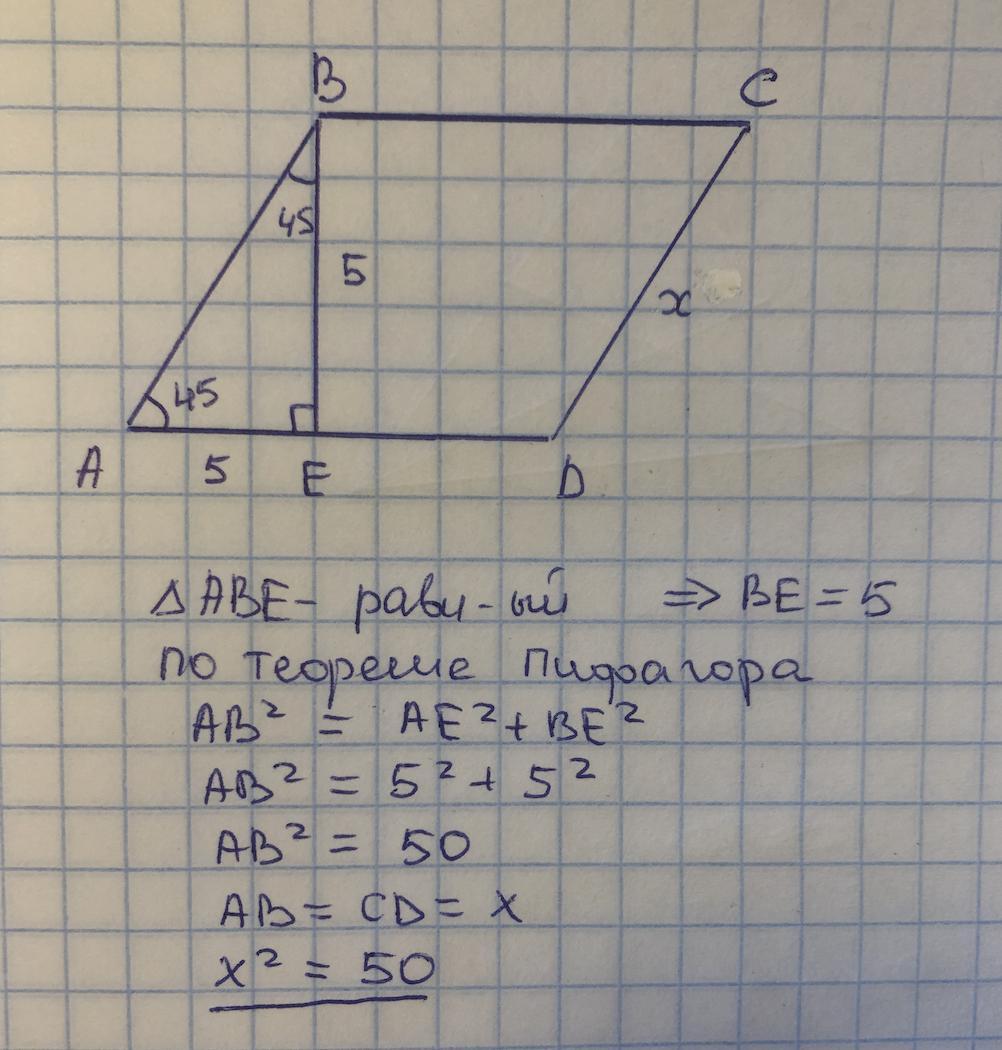 B
C
45
5
x
45
A
5
E
D
Δ ABE - равн-ый ⇒ BE = 5
по теореме Пифагора
AB² = AE² + BE²
AB² = 5² + 5²
AB² = 50
AB = CD = x
x² = 50